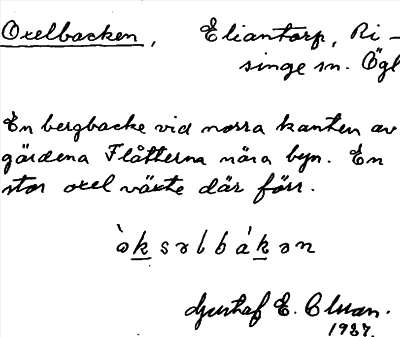 Oxelbacken, Eliantorp, Ri-
singe sn. Ögl
En bergbacke vid norra kanten av
gärdena Flåtterna nära byn. En
stor oxel växte där förr.
ò̀ksəlbákən
Gustaf E. Olsson.
1937.